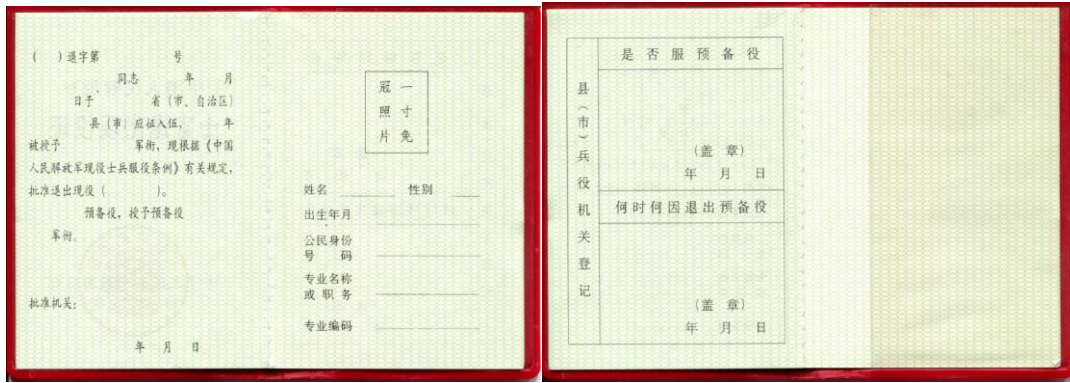 ( )退字第 号
同志 年 月
日于 省(市、自治区)
县(市)应征入伍, 年
被授予 军衔,现根据《中国
人民解放军现役士兵服役条例》有关规定,
批准退出现役( )。
预备役,授予预备役
军衔。
批准机关:
年 月 日
冠 一
照 寸
片 免
姓名 性别
出生年月
公民身份
号 码
专业名称
或 职 务
专业编码
县(市)兵役机关登记
是 否 服 预 备 役
(盖 章)
年 月 日
何时何因退出预备役
(盖 章)
年 月 日